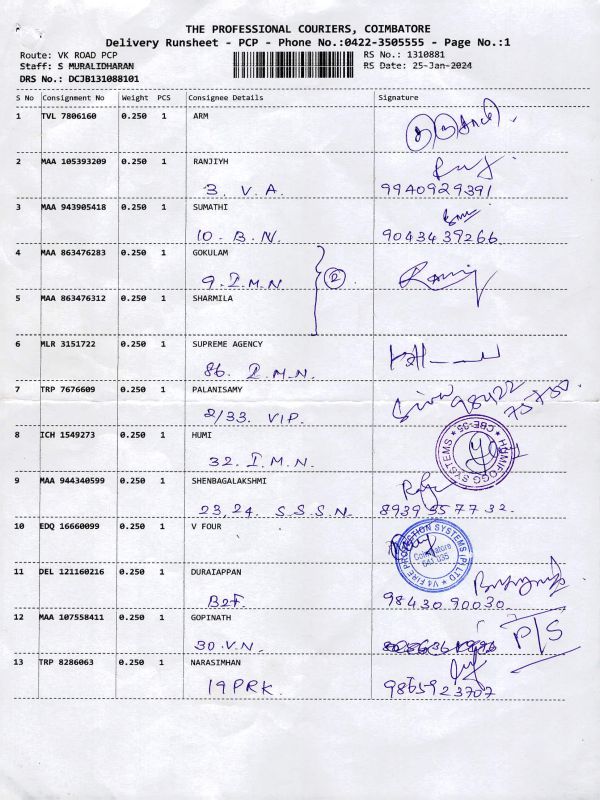 THE PROFESSIONAL COURIERS, COIMBATORE
Delivery Runsheet - PCP - Phone No.:0422-3505555 - Page No.:1
Route: VK ROAD PCP RS No.: 1310881
Staff: S MURALIDHARAN RS Date: 25-Jan-2024
DRS No.: DCJB131088101
S No Consignment No Weight PCS Consignee Details Signature
1 TVL 7806160 0.250 1 ARM
2 MAA 105393209 0.250 1 RANJIYH
3. V.A. 9940929391
3 MAA 943905418 0.250 1 SUMATHI
10. B.N. 9043439266
4 MAA 863476283 0.250 1 GOKULAM
9. I.M.N. 2
5 MAA 863476312 0.250 1 SHARMILA
6 MLR 3151722 0.250 1 SUPREME AGENCY
86. I.M.N.
7 TRP 7676609 0.250 1 PALANISAMY
2/33. VIP. Siva 98422 75700
8 ICH 1549273 0.250 1 HUMI
32. I.M.N. HUMIFOGG SYSTEMS CBE-35
9 MAA 944340599 0.250 1 SHENBAGALAKSHMI
23,24. S.S.S.N. 8939557732.
10 EDQ 16660099 0.250 1 V FOUR
V4 FIRE PROTECTION SYSTEMS (P) LTD Coimbatore 641 035
11 DEL 121160216 0.250 1 DURAIAPPAN
B2F. 9843090030.
12 MAA 107558411 0.250 1 GOPINATH
30.V.N. P/S
13 TRP 8286063 0.250 1 NARASIMHAN
19 PRK. 9865923707